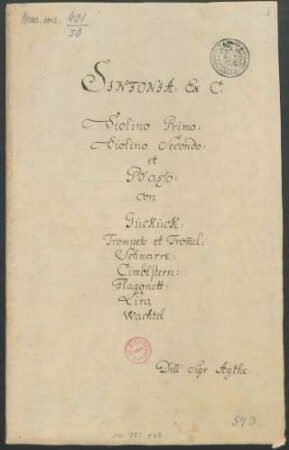 Mus. ms. 401/30
SINFONIA: Ex C.
Violino Primo:
Violino Secondo:
et
Basso:
con
Guckuck:
Trompete et Trom̄el:
Schnarre:
Cimbstern:
Flagonett:
Lira
Wachtel
Dell Sigr
543